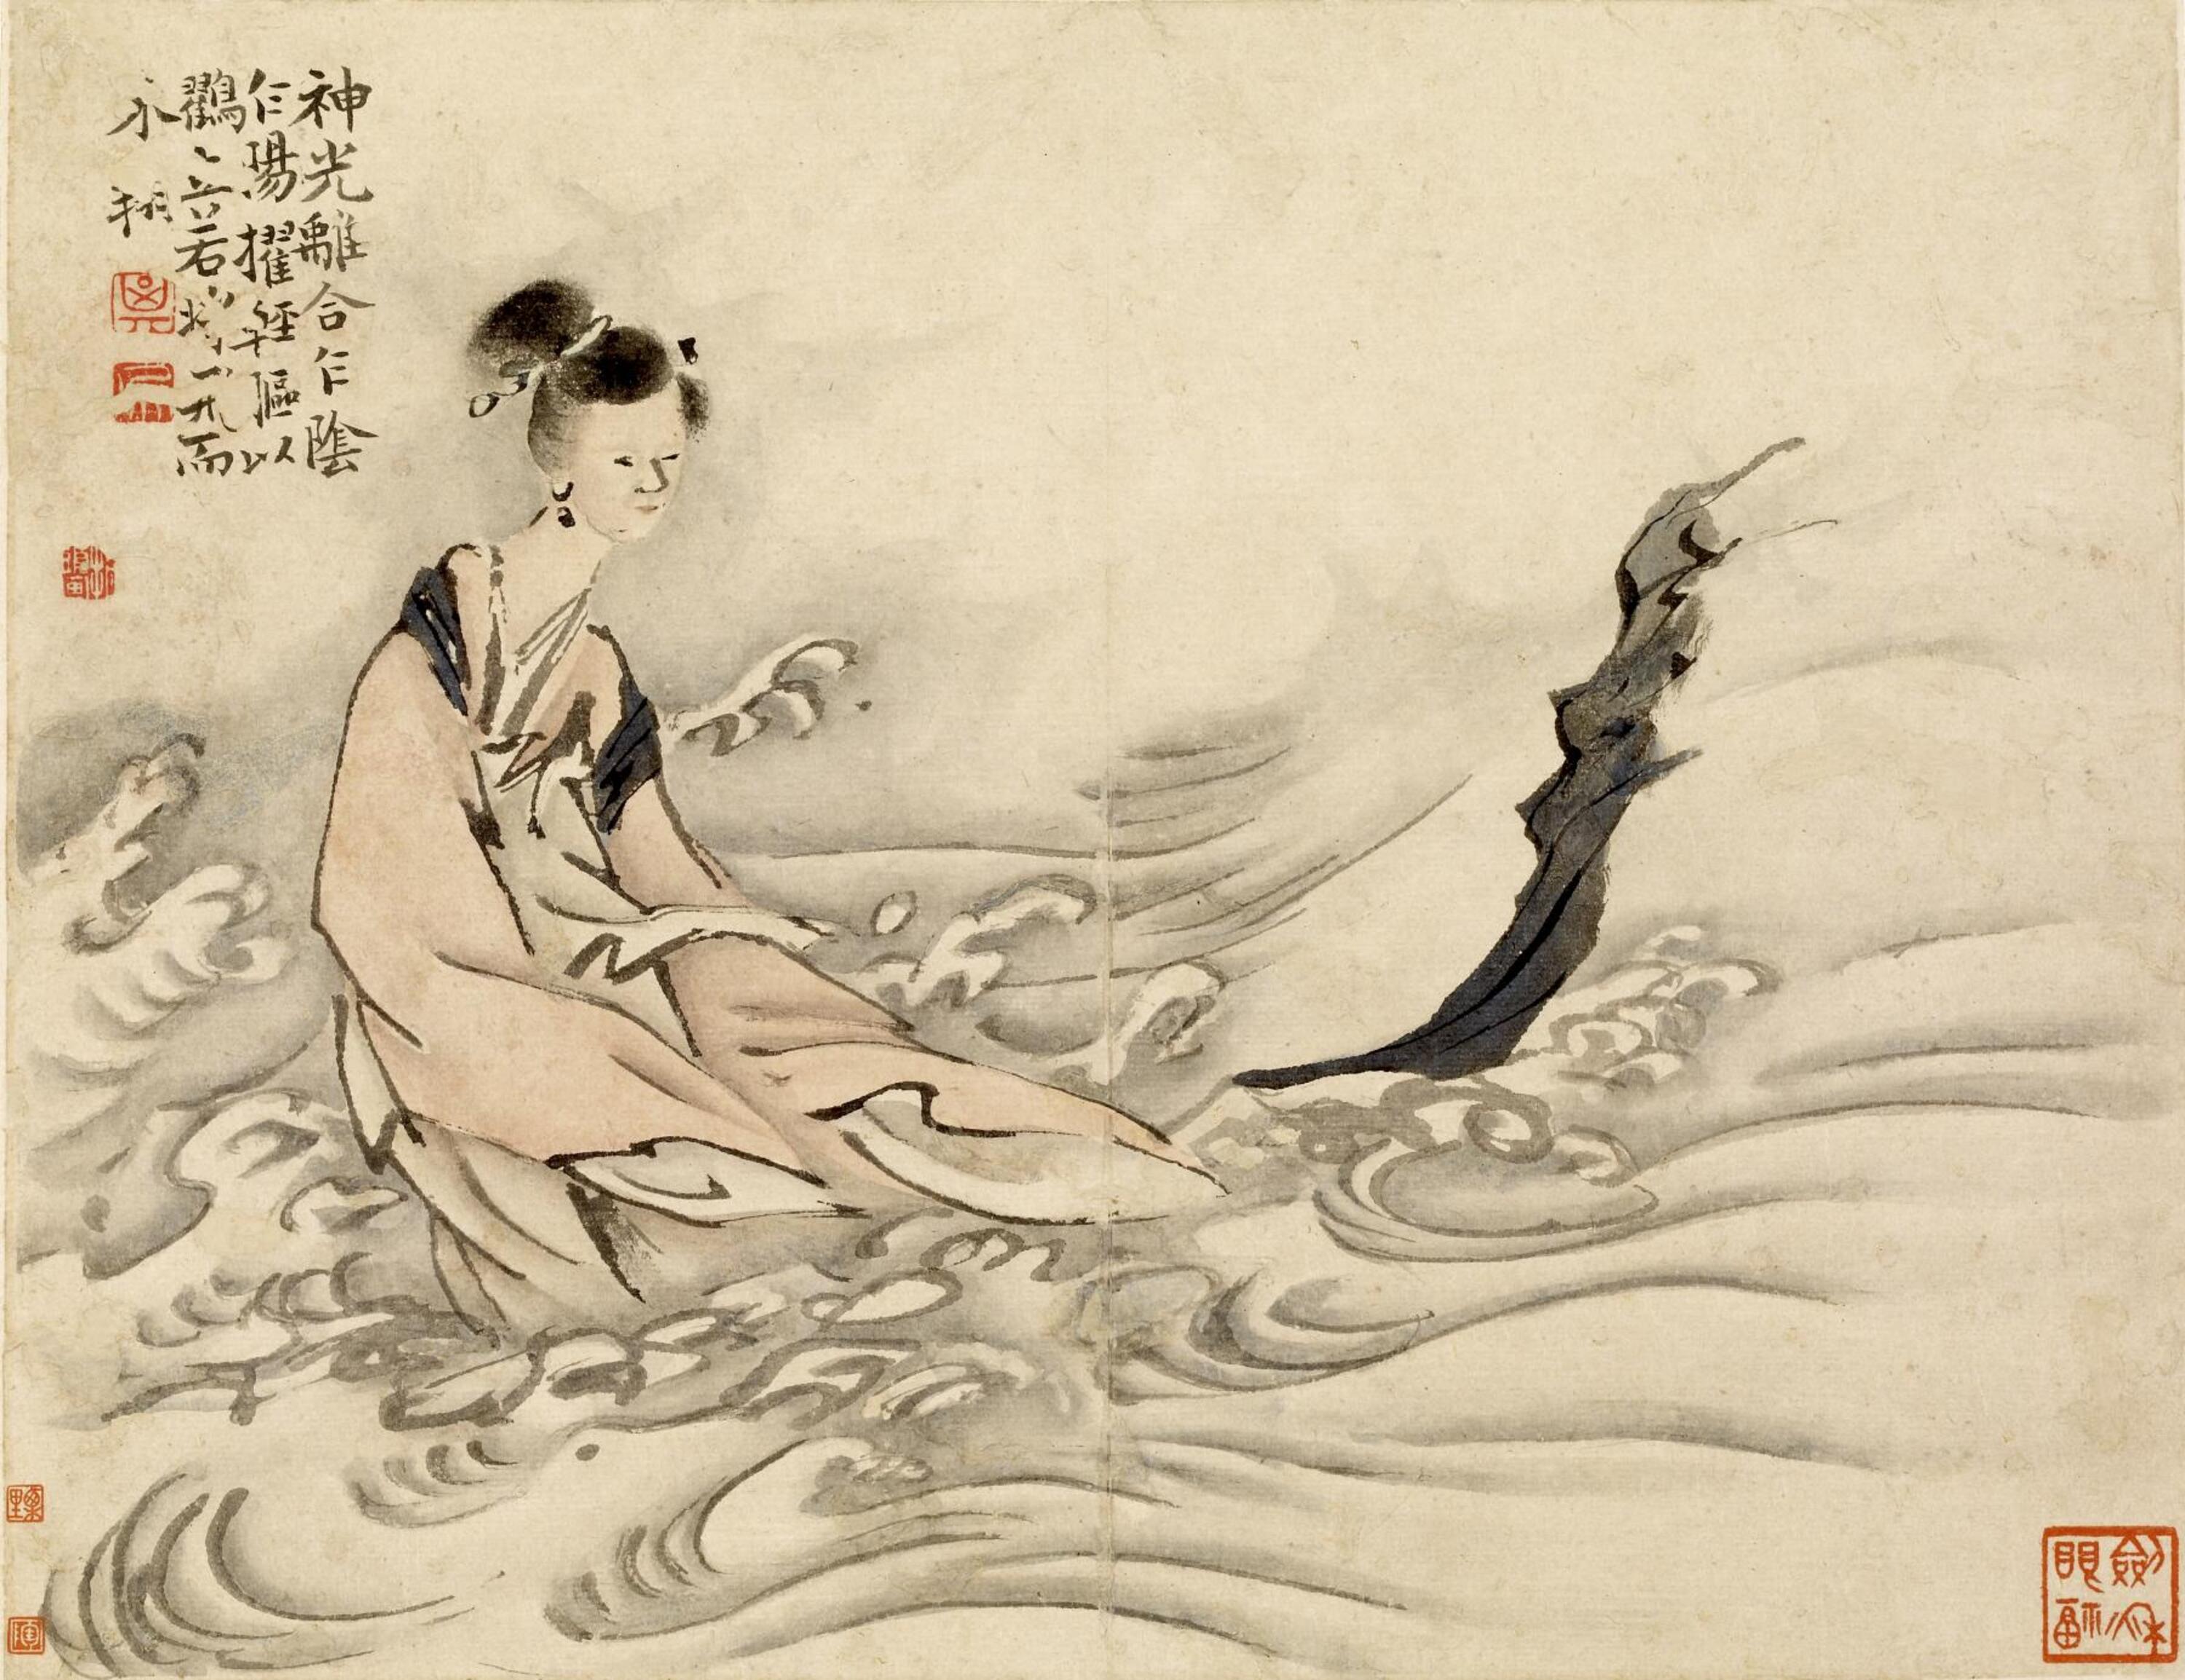 神光離合乍陰
乍陽擢輕軀以
鶴立若將飛而
未翔
劍泉
眼福